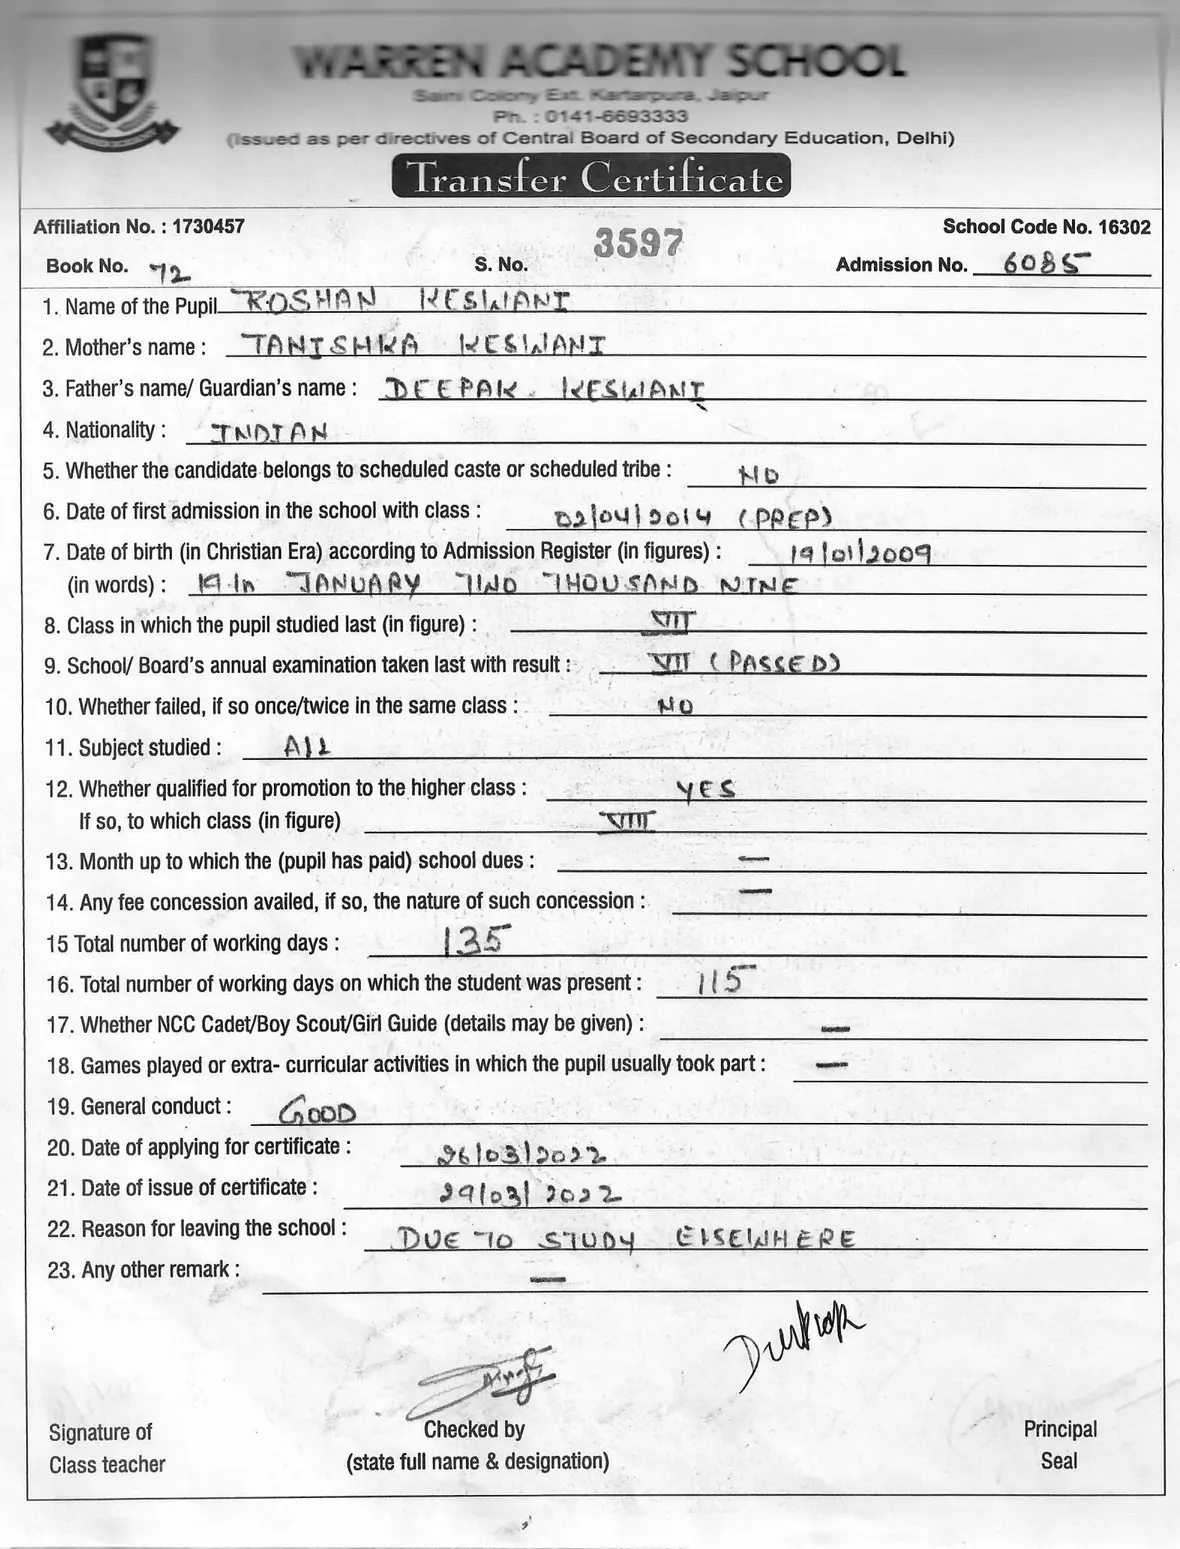 WARREN ACADEMY SCHOOL
Saini Colony Ext. Kartarpura, Jaipur
Ph. : 0141-6693333
(Issued as per directives of Central Board of Secondary Education, Delhi)
Transfer Certificate
Affiliation No. : 1730457 3597 School Code No. 16302
Book No. 72 S. No. Admission No. 6085
1. Name of the Pupil ROSHAN KESWANI
2. Mother's name : TANISHKA KESWANI
3. Father's name/ Guardian's name : DEEPAK KESWANI
4. Nationality : INDIAN
5. Whether the candidate belongs to scheduled caste or scheduled tribe : NO
6. Date of first admission in the school with class : 02/04/2014 (PREP)
7. Date of birth (in Christian Era) according to Admission Register (in figures) : 19/01/2009
(in words) : 19 th JANUARY TWO THOUSAND NINE
8. Class in which the pupil studied last (in figure) : VII
9. School/ Board's annual examination taken last with result : VII (PASSED)
10. Whether failed, if so once/twice in the same class : NO
11. Subject studied : All
12. Whether qualified for promotion to the higher class : YES
If so, to which class (in figure) VIII
13. Month up to which the (pupil has paid) school dues : —
14. Any fee concession availed, if so, the nature of such concession : —
15 Total number of working days : 135
16. Total number of working days on which the student was present : 115
17. Whether NCC Cadet/Boy Scout/Girl Guide (details may be given) : —
18. Games played or extra- curricular activities in which the pupil usually took part : —
19. General conduct : GOOD
20. Date of applying for certificate : 26/03/2022
21. Date of issue of certificate : 29/03/2022
22. Reason for leaving the school : DUE TO STUDY ElSEWHERE
23. Any other remark : —
Signature of Checked by Principal
Class teacher (state full name & designation) Seal